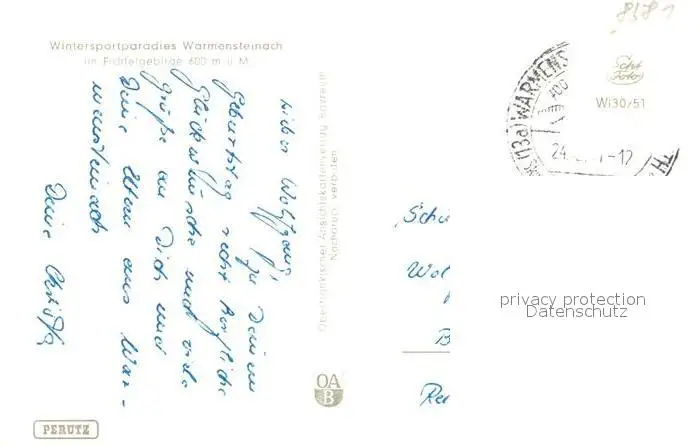 Wintersportparadies Warmensteinach
im Fichtelgebirge 600 m ü. M.
Lieber Wolfgang!
Zu Deinem
Geburtstag recht herzliche
Glückwünsche und viele
Grüße an Dich und
Deine Eltern aus War-
mensteinach
Deine
Oberfränkischer Ansichtskartenverlag Bayreuth
Nachdruck verboten
OA
B
PERUTZ
8581
Schi
Foto
Wi30/51
(13a) WARMENS
24. 1-12
Schü
Wol
B
Re
privacy protection
Datenschutz